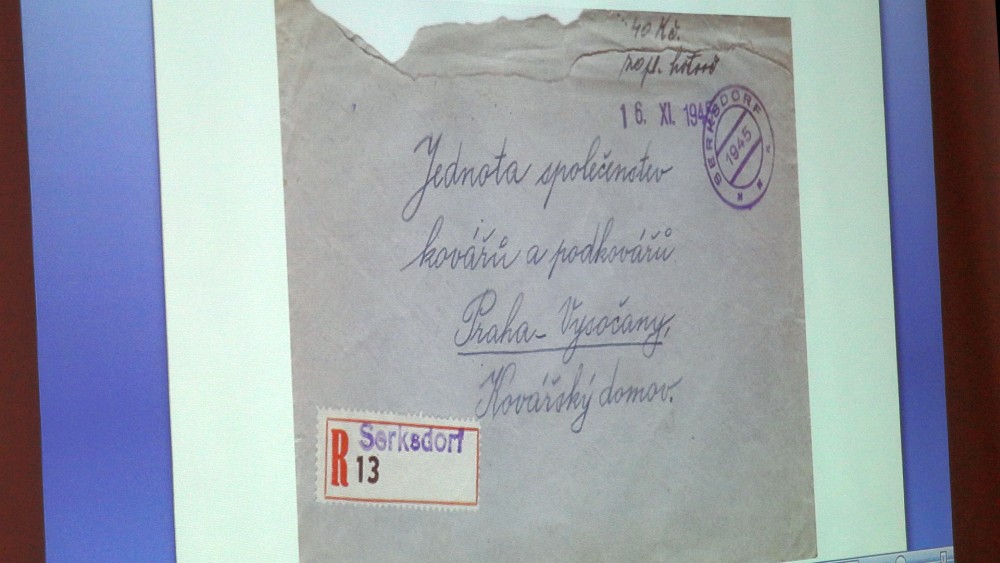 40 Kč.
zapl. hotově
16. XI. 1945
SERKSDORF
1945
Jednota společenstev
kovářů a podkovářů
Praha - Vysočany,
Kovářský domov.
R Serksdorf
13